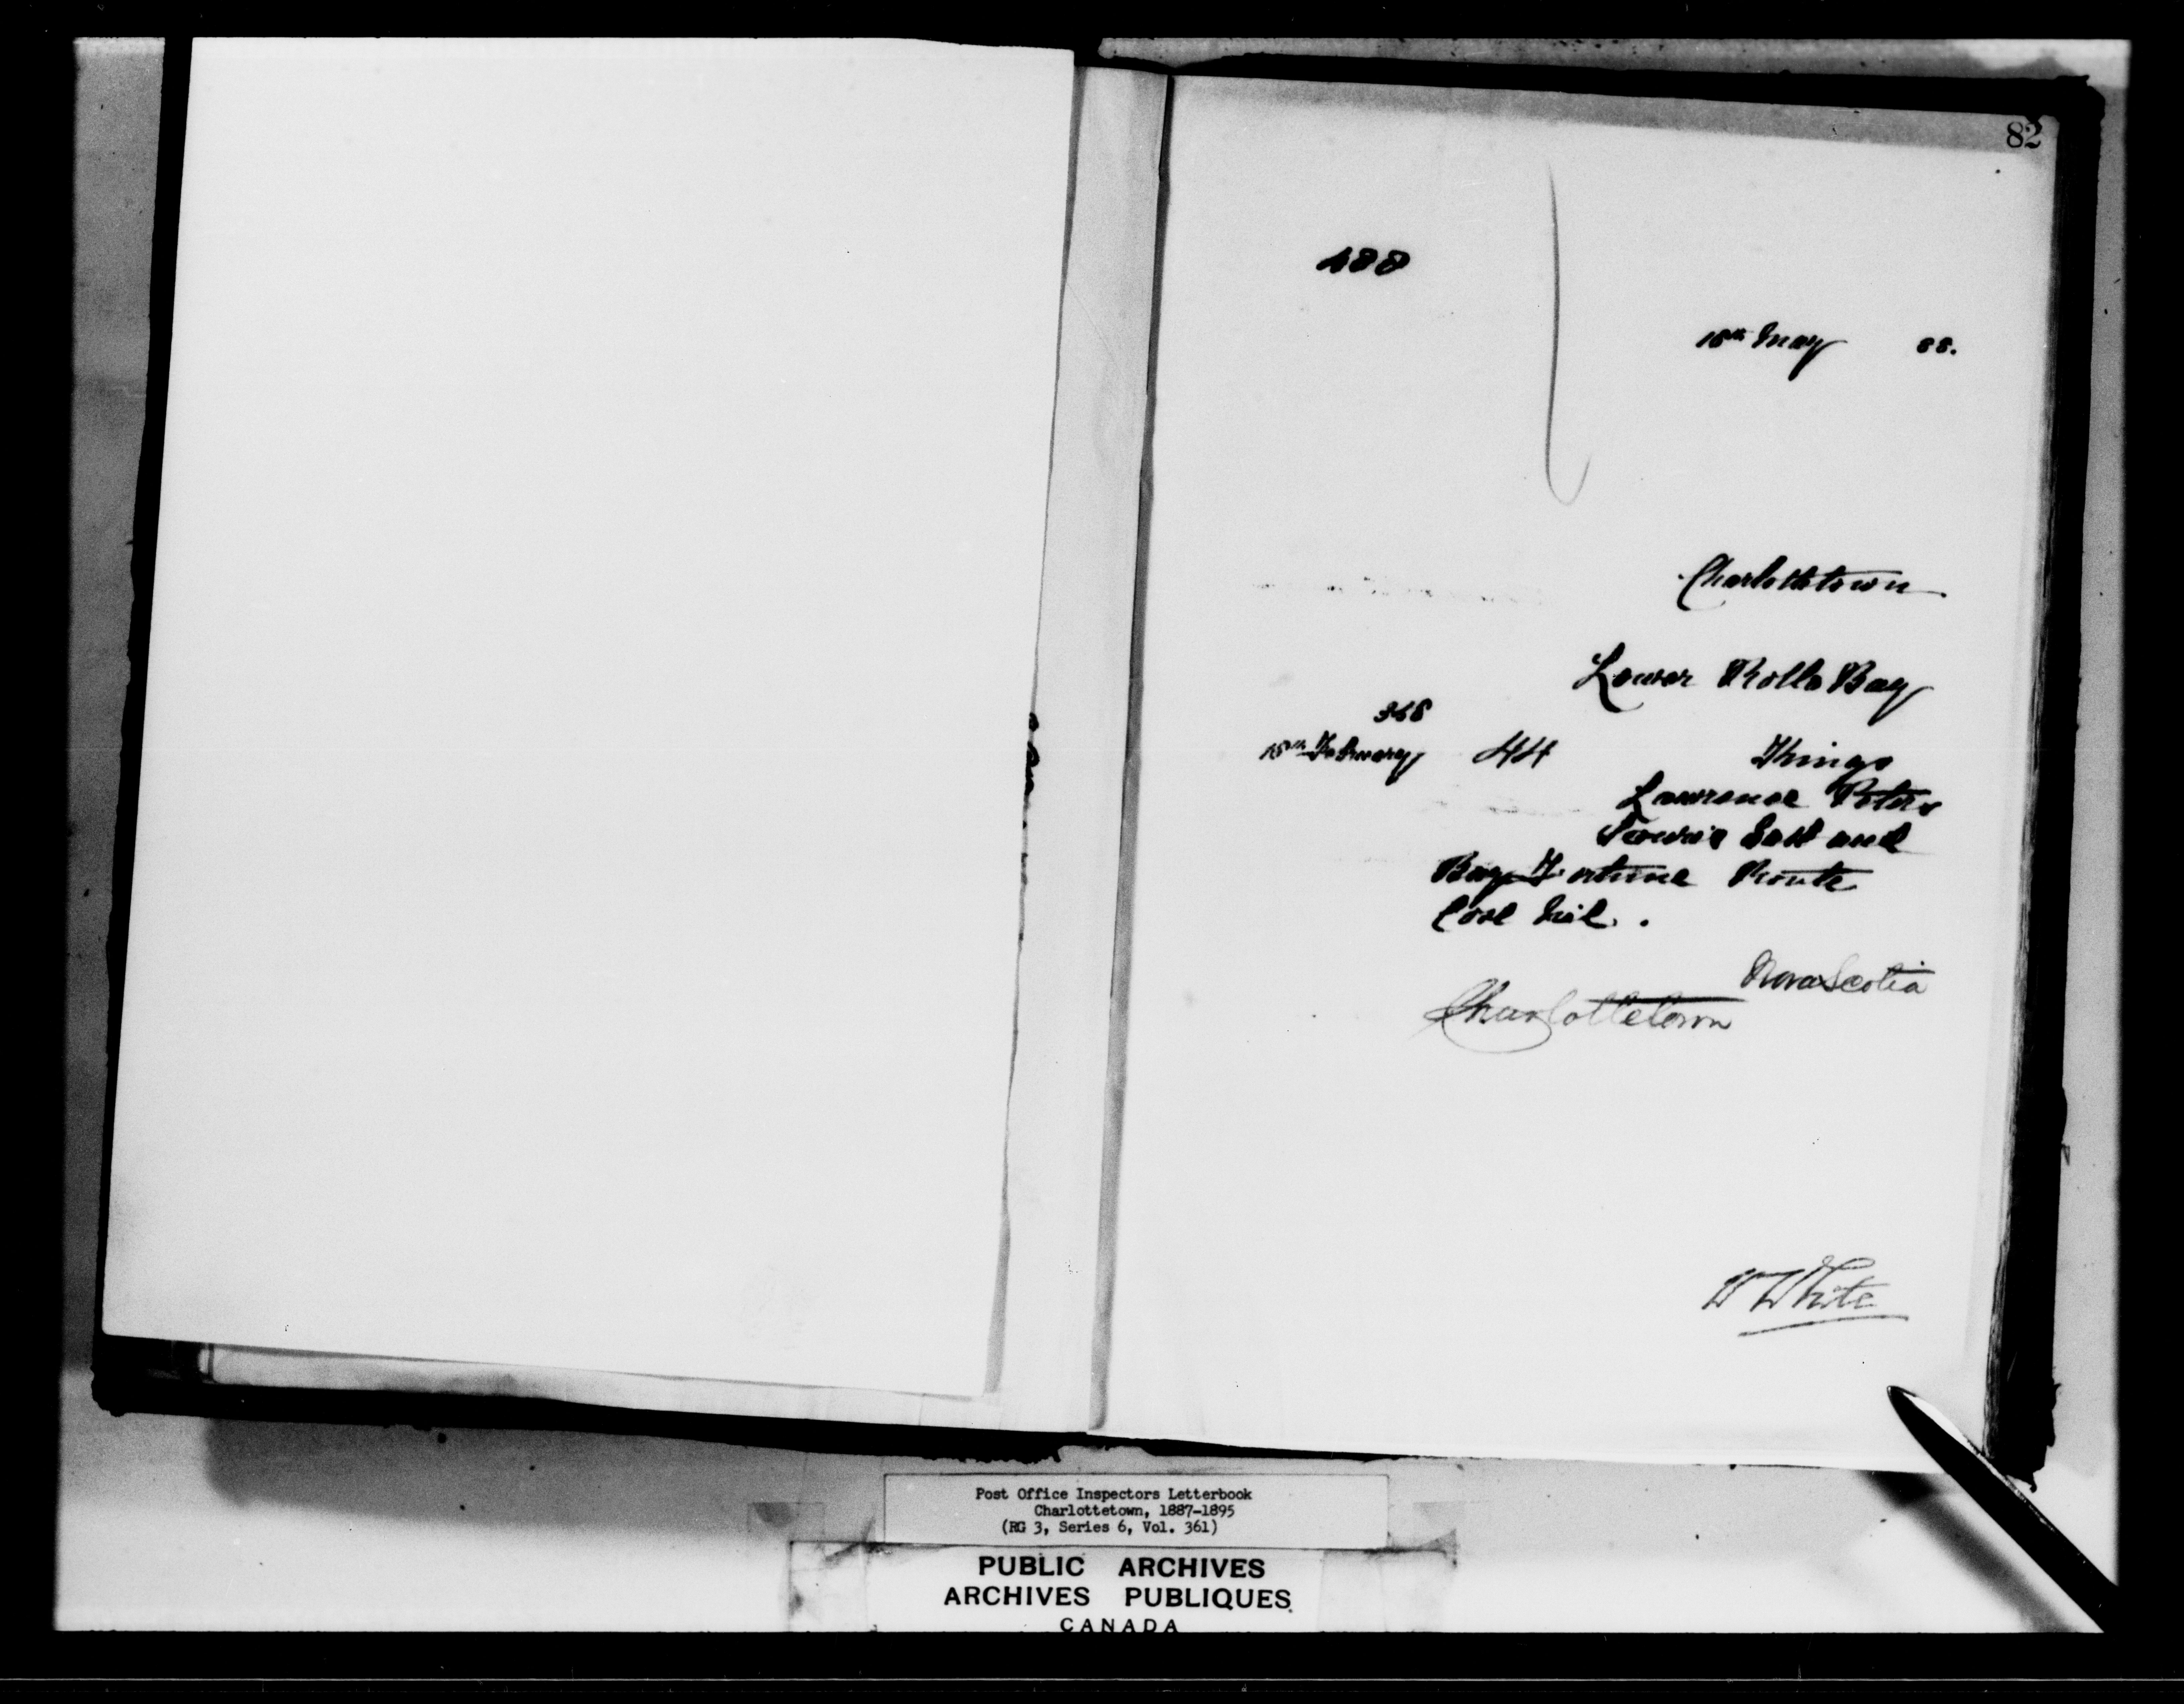 82
488
18th May 88.
Charlottetown
Lower Rollo Bay
368
15th February 44 Kings
Lawrence Peters
Souris East and
Bay Fortune Route
Cost nil.
Nova Scotia
Charlottetown
W White
Post Office Inspectors Letterbook
Charlottetown, 1887-1895
(RG 3, Series 6, Vol. 361)
PUBLIC ARCHIVES
ARCHIVES PUBLIQUES
CANADA